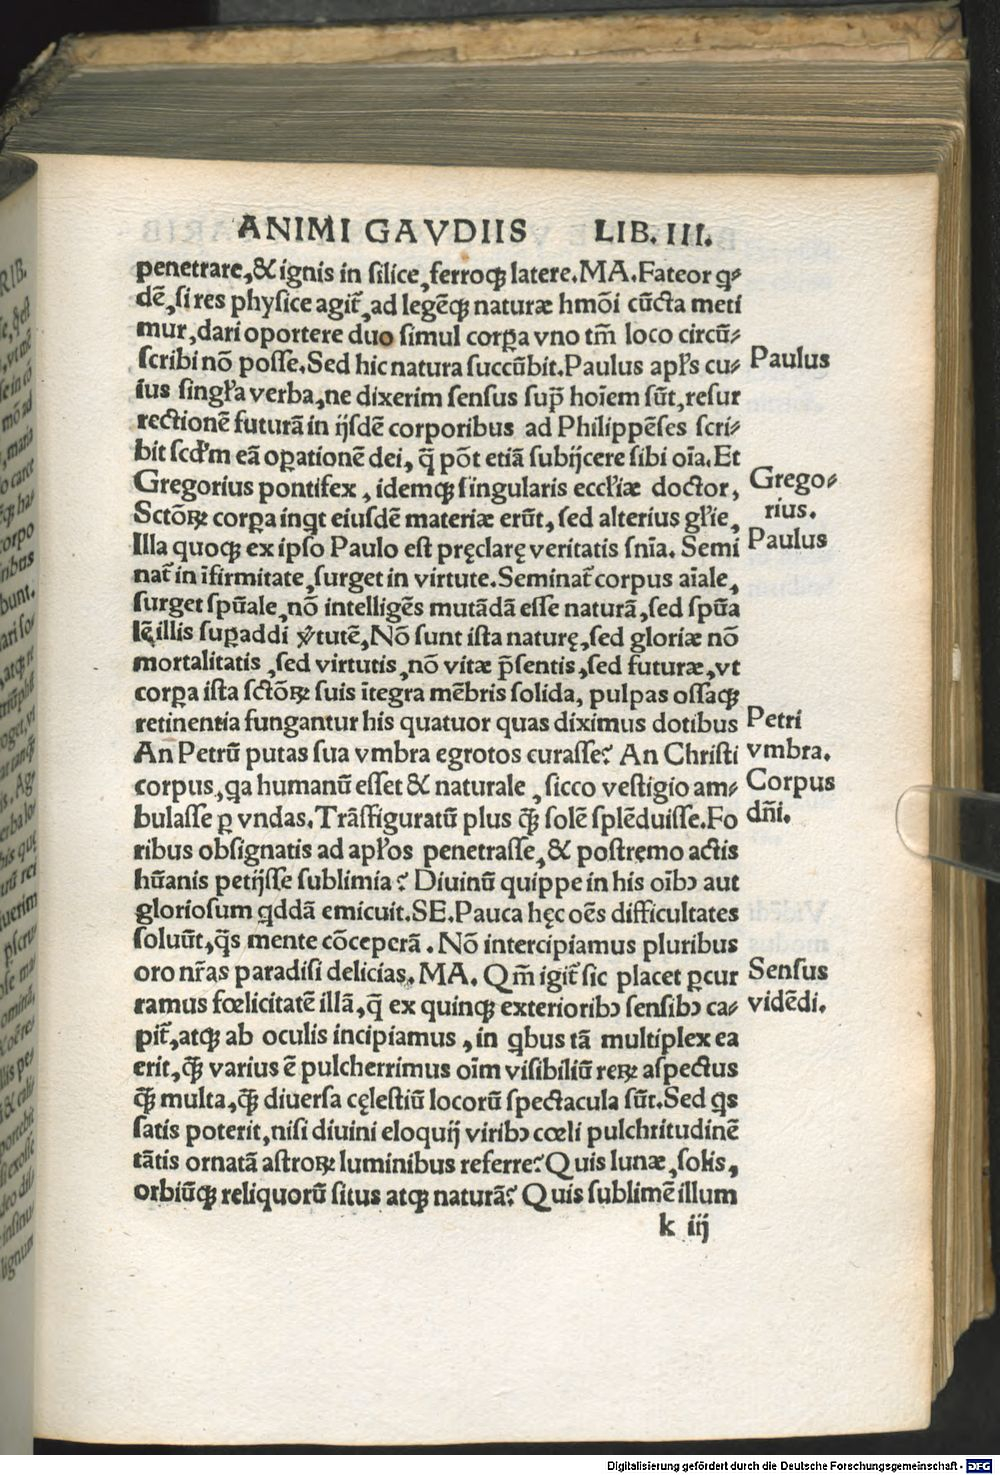 ANIMI GAVDIIS LIB. III.
penetrare, & ignis in silice, ferroqꝫ latere. MA. Fateor q̇-
dē, si res physice agit᷑, ad legēqꝫ naturæ hmōi cūcta meti
mur, dari oportere duo simul corꝑa vno tm̄ loco circū-
scribi nō posse. Sed hic natura succūbit. Paulus apl̄s cu-
ius singl̄a verba, ne dixerim sensus sup̄ hoīem sūt, resur
rectionē futurā in ijsdē corporibus ad Philippēses scri-
bit scd̄m eā oꝑationē dei, q̄ pōt etiā subijcere sibi oīa. Et
Gregorius pontifex, idemqꝫ singularis eccl̄iæ doctor,
Sctōꝝ corꝑa inqt eiusdē materiæ erūt, sed alterius gl̄ie,
Illa quoqꝫ ex ipso Paulo est pręclarę veritatis snīa. Semi
nat᷑ in īfirmitate, surget in virtute. Seminat᷑ corpus aīale,
surget spūale, nō intelligēs mutādā esse naturā, sed spūa
lē illis suꝑaddi v̓tutē, Nō sunt ista naturę, sed gloriæ nō
mortalitatis, sed virtutis, nō vitæ p̄sentis, sed futuræ, vt
corꝑa ista sctōꝝ suis ītegra mēbris solida, pulpas ossaqꝫ
retinentia fungantur his quatuor quas diximus dotibus
An Petrū putas sua vmbra egrotos curasse? An Christi
corpus, qa humanū esset & naturale, sicco vestigio am-
bulasse ꝑ vndas. Trāsfiguratū plus q̄ꝫ solē splēduisse. Fo
ribus obsignatis ad apl̄os penetrasse, & postremo actis
hūanis petijsse sublimia? Diuinū quippe in his oībꝰ aut
gloriosum qddā emicuit. SE. Pauca hęc oēs difficultates
soluūt, q̄s mente cōceperā. Nō intercipiamus pluribus
oro nr̄as paradisi delicias. MA. Qm̄ igit᷑ sic placet ꝑcur
ramus fœlicitatē illā, q̄ ex quinqꝫ exterioribꝰ sensibꝰ ca-
pit᷑, atqꝫ ab oculis incipiamus, in qbus tā multiplex ea
erit, q̄ꝫ varius ē pulcherrimus oīm visibiliū reꝝ aspectus
q̄ꝫ multa, q̄ꝫ diuersa cęlestiū locorū spectacula sūt. Sed qs
satis poterit, nisi diuini eloquij viribꝰ cœli pulchritudinē
tātis ornatā astroꝝ luminibus referre? Quis lunæ, solis,
orbiūqꝫ reliquorū situs atqꝫ naturā? Quis sublimē illum
k iij
Paulus
Grego-
rius.
Paulus
Petri
vmbra.
Corpus
dn̄i.
Sensus
vidēdi.
Digitalisierung gefördert durch die Deutsche Forschungsgemeinschaft - DFG